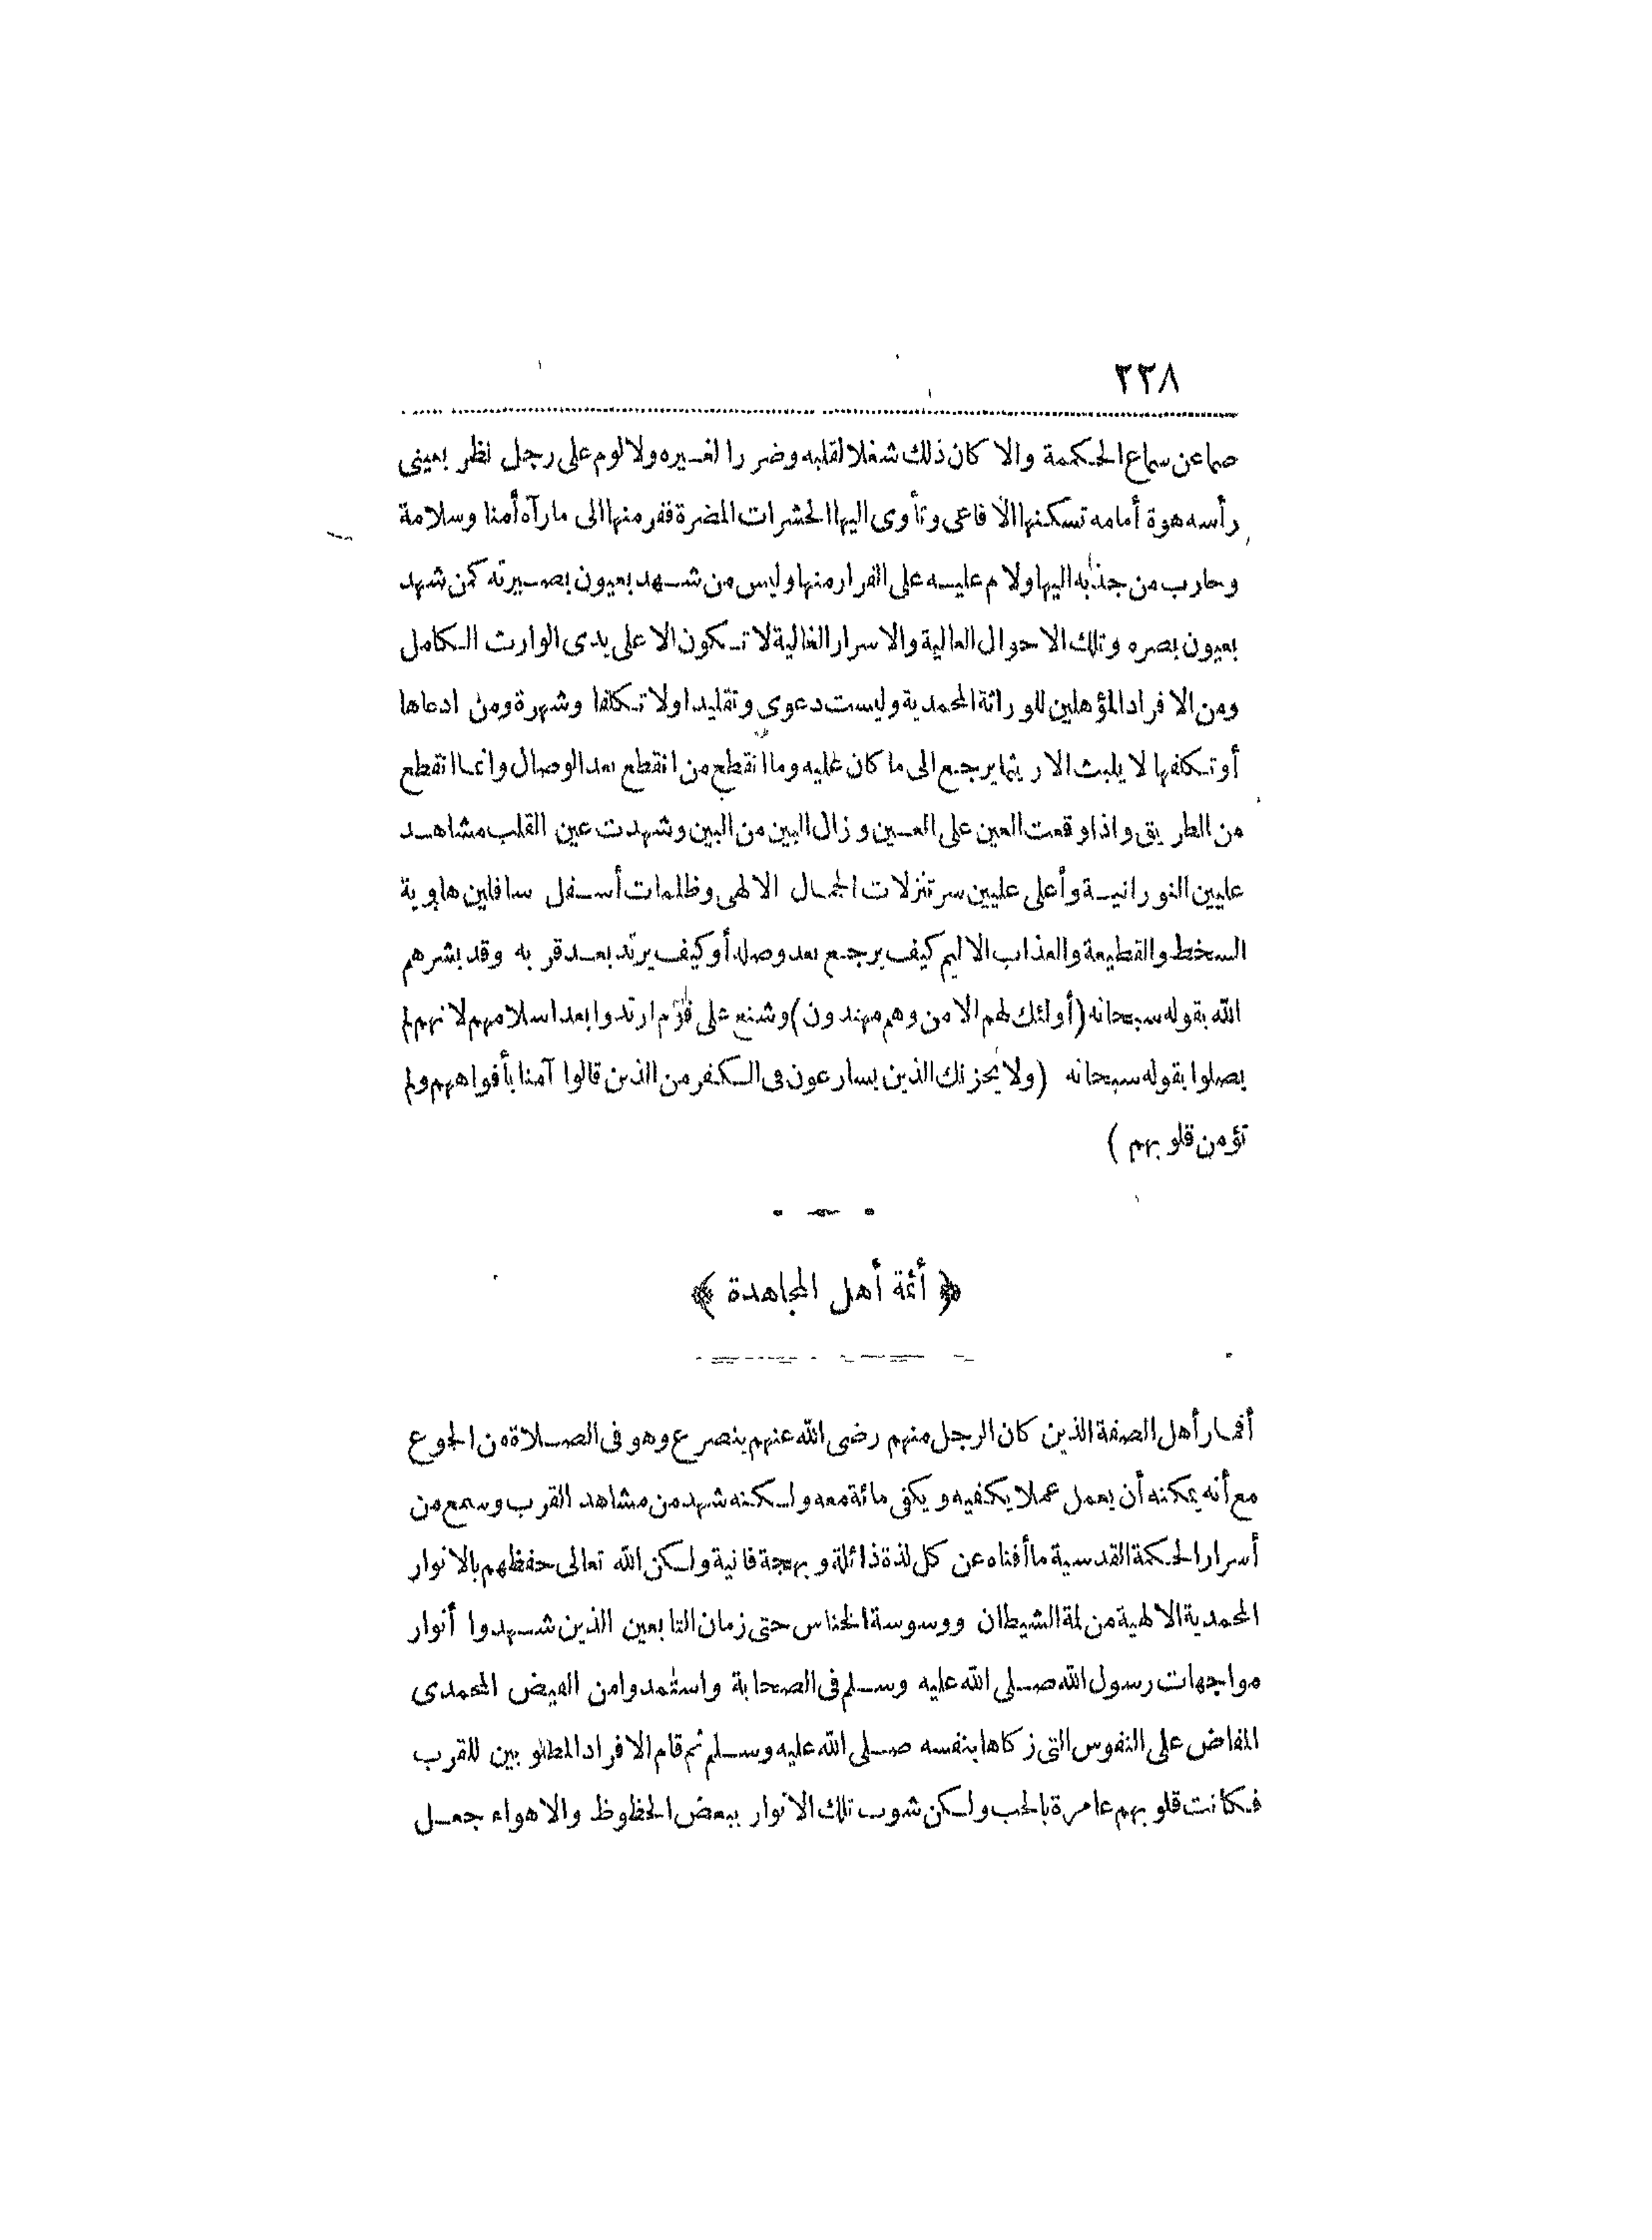 ٢٣٨
صما عن سماع الحكمة والا كان ذلك شغلا لقلبه وضررا لغيره ولا لوم على رجل نظر بعينى
رأسه هوة أمامه تسكنها الافاعى وتأوى اليها الحشرات المضرة ففر منها الى مارآه أمنا وسلامة
وحارب من جذبه اليها ولام عليه على الفرار منها وليس من شهد بعيون بصيرته كمن شهد
بعيون بصره وتلك الاحوال العالية والاسرار الغالية لا تكون الا على يدى الوارث الكامل
ومن الافراد المؤهلين للوراثة المحمدية وليست دعوى وتقليدا ولا تكلفا وشهرة ومن ادعاها
أو تكلفها لا يلبث الا ريثما يرجع الى ما كان عليه وما انقطع من انقطع بعد الوصال وانما انقطع
من الطريق واذا وقعت العين على العين وزال البين من البين وشهدت عين القلب مشاهد
عليين النورانية وأعلى عليين سر تنزلات الجمال الالهى وظلمات أسفل سافلين هاوية
السخط والقطيعة والعذاب الاليم كيف يرجع بعد وصله أو كيف يرتد بعد قربه وقد بشرهم
الله بقوله سبحانه (أولئك لهم الامن وهم مهتدون) وشنع على قوم ارتدوا بعد اسلامهم لانهم لم
يصلوا بقوله سبحانه (ولا يحزنك الذين يسارعون فى الكفر من الذين قالوا آمنا بأفواههم ولم
تؤمن قلوبهم)
﴿ أئمة أهل المجاهدة ﴾
أقمار أهل الصفة الذين كان الرجل منهم رضى الله عنهم ينصرع وهو فى الصلاة من الجوع
مع أنه يمكنه أن يعمل عملا يكفيه ويكفى مائة معه ولكنه شهد من مشاهد القرب وسمع من
أسرار الحكمة القدسية ما أفناه عن كل لذة زائلة وبهجة فانية ولكن الله تعالى حفظهم بالانوار
المحمدية الالهية من لمة الشيطان ووسوسة الخناس حتى زمان التابعين الذين شهدوا أنوار
مواجهات رسول الله صلى الله عليه وسلم فى الصحابة واستمدوا من الفيض المحمدى
المفاض على النفوس التى زكاها بنفسه صلى الله عليه وسلم ثم قام الافراد المطلوبين للقرب
فكانت قلوبهم عامرة بالحب ولكن شوب تلك الانوار ببعض الحظوظ والاهواء جعل